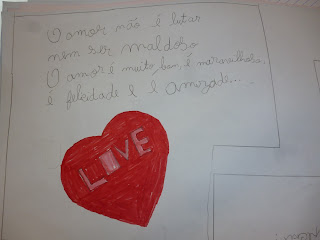 O amor não é lutar
nem ser maldoso
O amor é muito bom, é maravilhoso,
é felicidade e é amizade...
LOVE